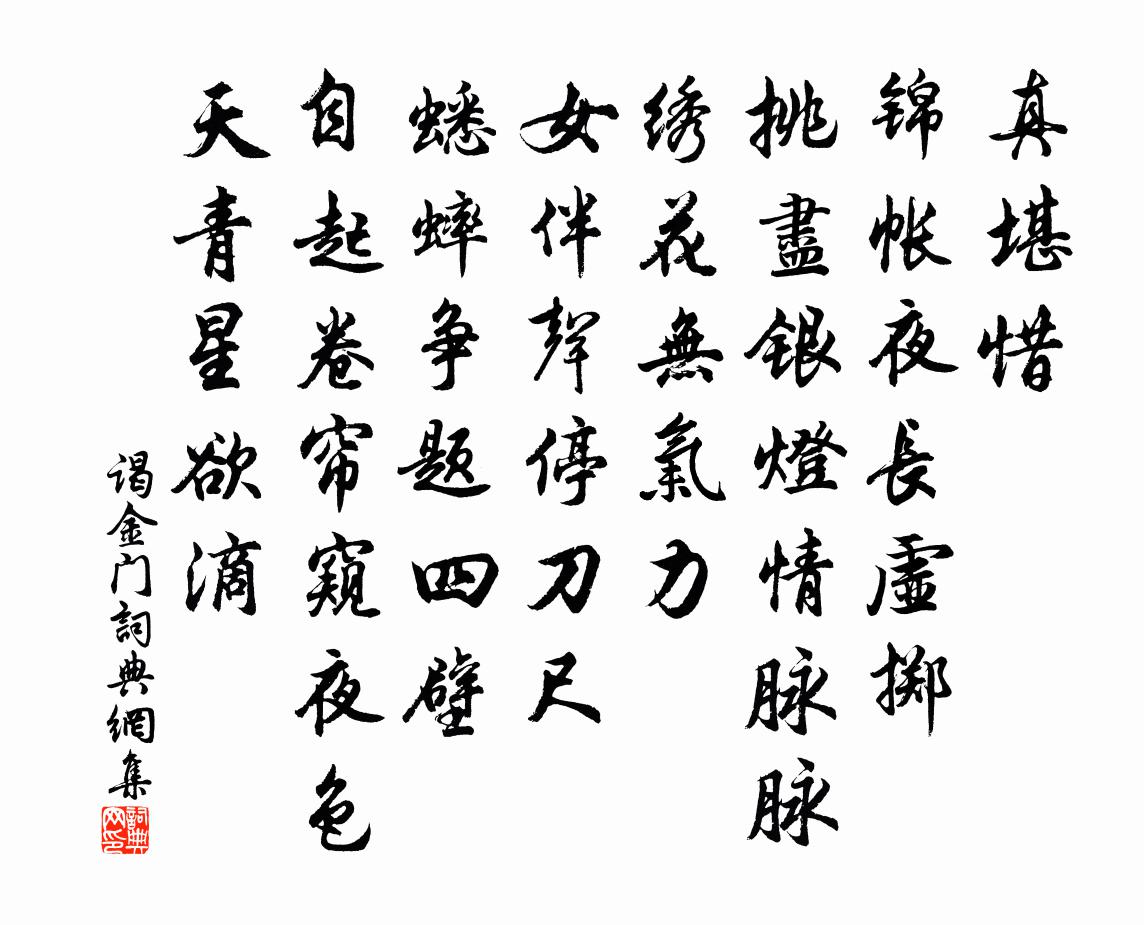 真堪惜
锦帐夜長虚掷
挑盡银燈情脉脉
绣花無氣力
女伴聲停刀尺
蟋蟀争题四壁
自起卷帘窺夜色
天青星欲滴
谒金门詞典網集
詞典网印